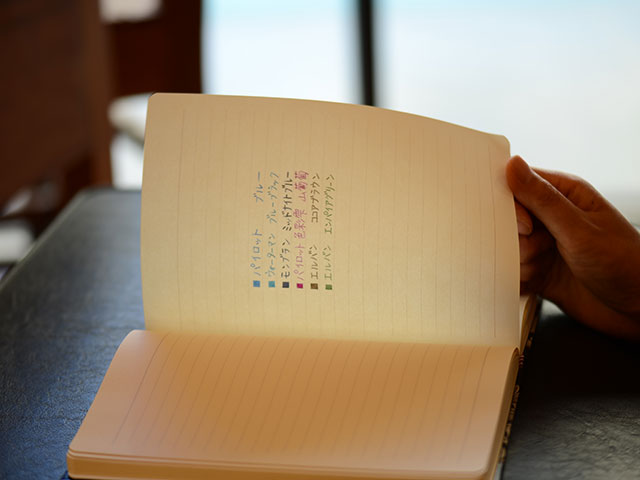 ■パイロット ブルー
■ウォーターマン ブルーブラック
■モンブラン ミッドナイトブルー
■パイロット色彩雫 山葡萄
■エルバン ココアブラウン
■エルバン エンパイアグリーン